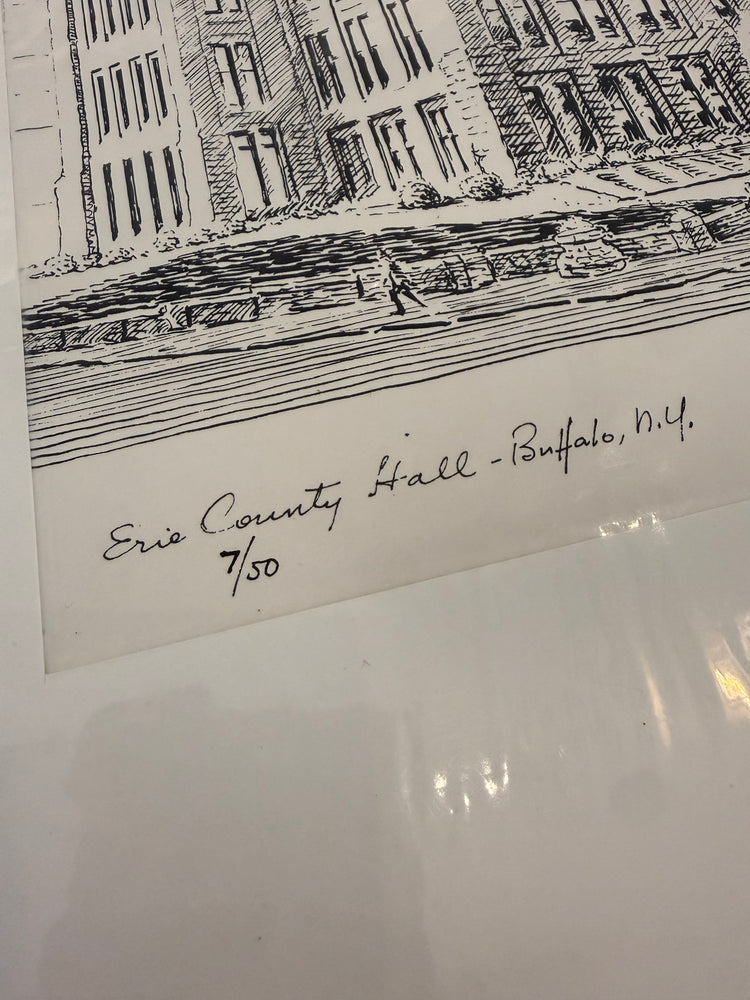 Erie County Hall - Buffalo, N.Y.
7/50